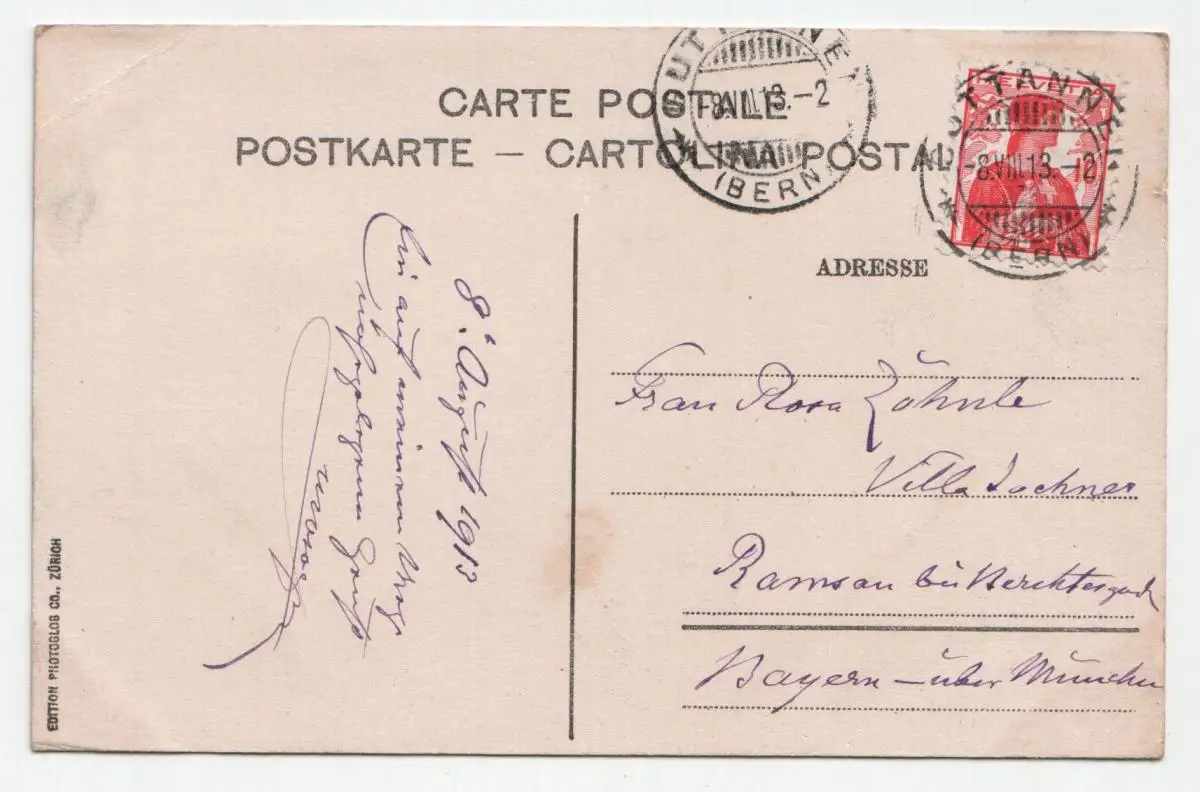 CARTE POSTALE
POSTKARTE – CARTOLINA POSTAL
GUTTANNEN
-8.VIII.13.–2
(BERN)
HELVETIA
GUTTANNEN
-8.VIII.13.–12
(BERN)
ADRESSE
8. August 1913
Ein auf meinem Wege
Gruß
Frau Rosa Zöhnle
Villa Lochner
Ramsau bei Berchtesgad
Bayern – über München
EDITION PHOTOGLOB CO., ZÜRICH